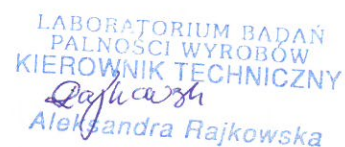 LABORATORIUM BADAŃ
PALNOŚCI WYROBÓW
KIEROWNIK TECHNICZNY
Rajkowska
Aleksandra Rajkowska